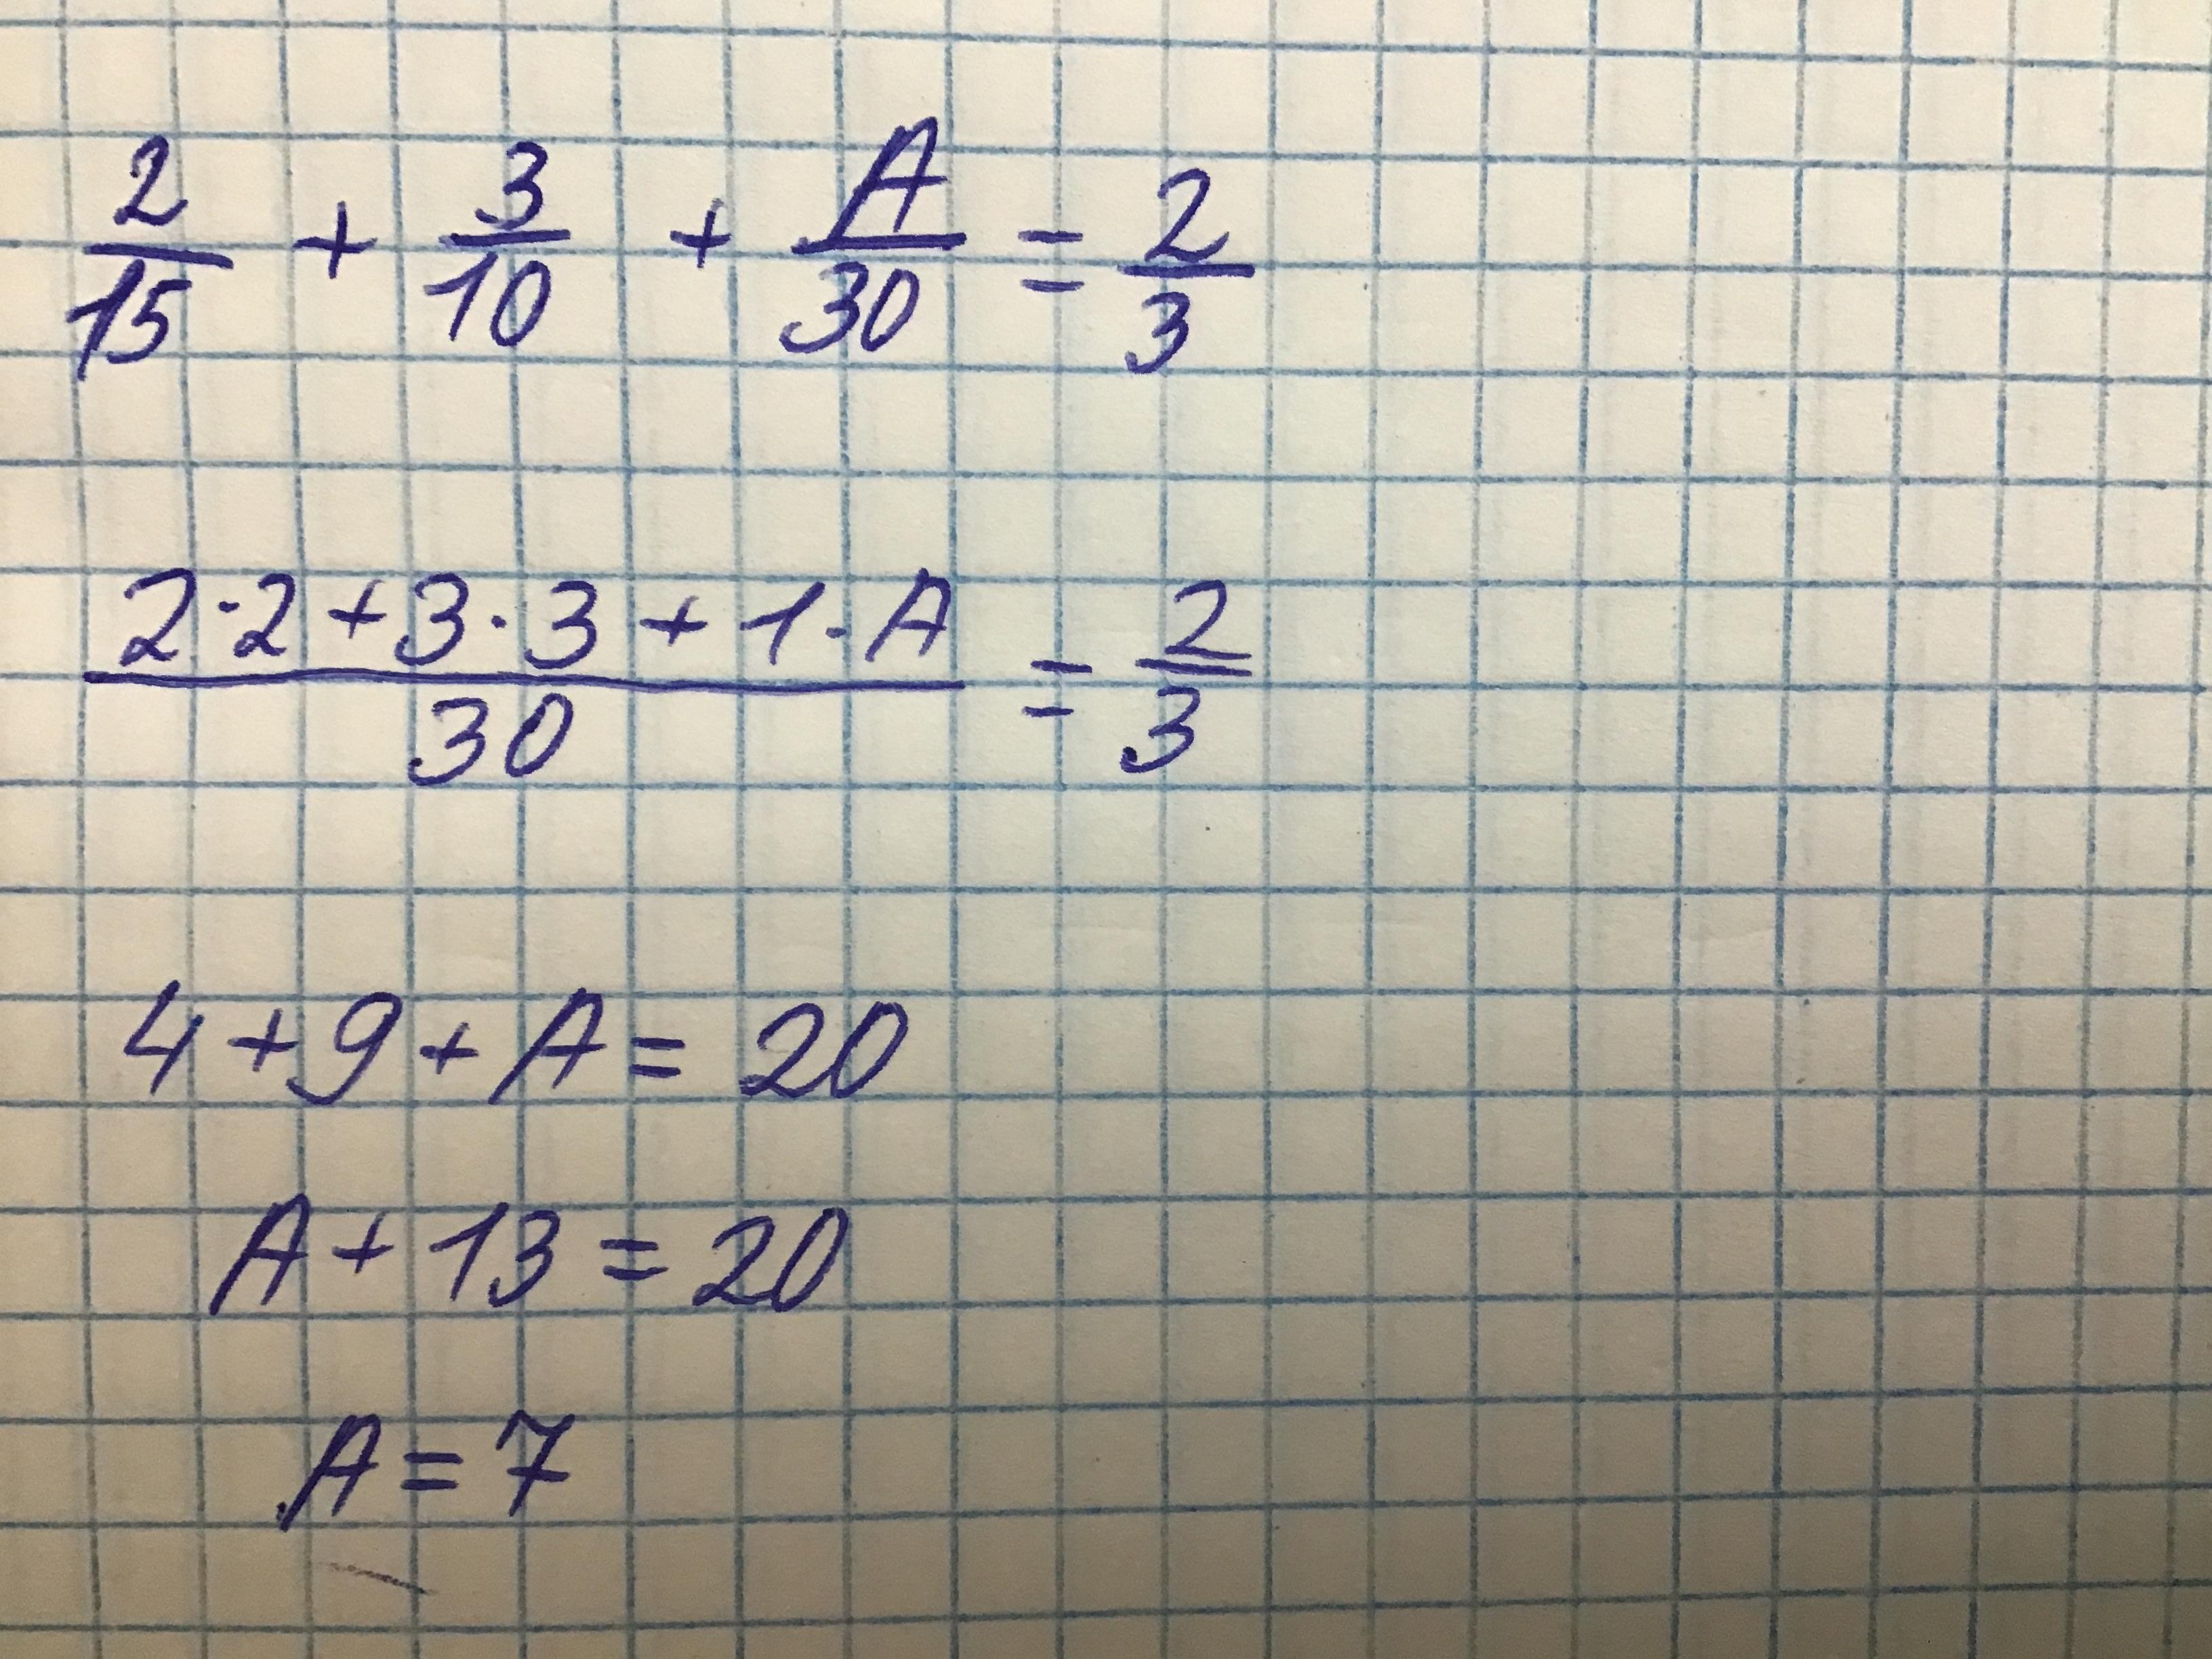 2/15 + 3/10 + A/30 = 2/3
(2·2+3·3+1·A)/30 = 2/3
4+9+A=20
A+13=20
A=7